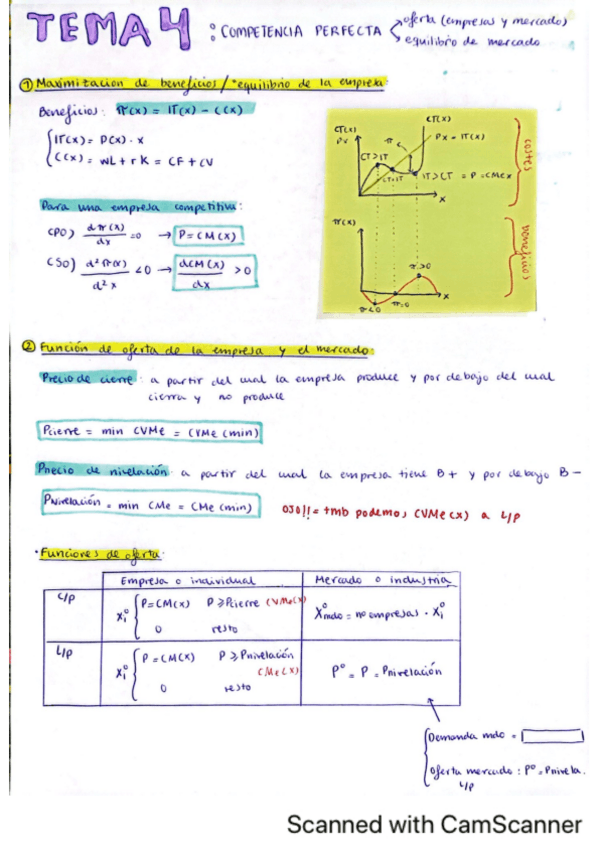 TEMA 4 : COMPETENCIA PERFECTA
oferta (empresas y mercado)
equilibrio de mercado
① Maximización de beneficios / equilibrio de la empresa:
Beneficios: π(x) = IT(x) - C(x)
IT(x) = P(x) · x
C(x) = wL + rK = CF + CV
Para una empresa competitiva:
CPO) dπ(x)/dx = 0 → P = CM(x)
CSO) d²π(x)/d²x < 0 → dCM(x)/dx > 0
CT(x)
Px
CT(x)
Px = IT(x)
π
CT>IT
CT=IT
IT>CT = P = CMCx
x
costes
π(x)
π>0
π=0
π<0
x
beneficios
② Función de oferta de la empresa y el mercado:
Precio de cierre: a partir del cual la empresa produce y por debajo del cual
cierra y no produce
Pcierre = min CVMe = CVMe (min)
Precio de nivelación: a partir del cual la empresa tiene B+ y por debajo B-
Pnivelación = min CMe = CMe (min)
OJO!! = tmb podemos CVMe(x) a L/p
· Funciones de oferta:
Empresa o individual
Mercado o industria
C/p
Xi° P=CM(x) P≥Pcierre CVMe(x)
0 resto
X°mdo = no empresas · Xi°
L/p
Xi° P=CM(x) P≥Pnivelación
CMe(x)
0 resto
P° = P = Pnivelación
Demanda mdo =
Oferta mercado : P° = Pnivela.
L/p
Scanned with CamScanner